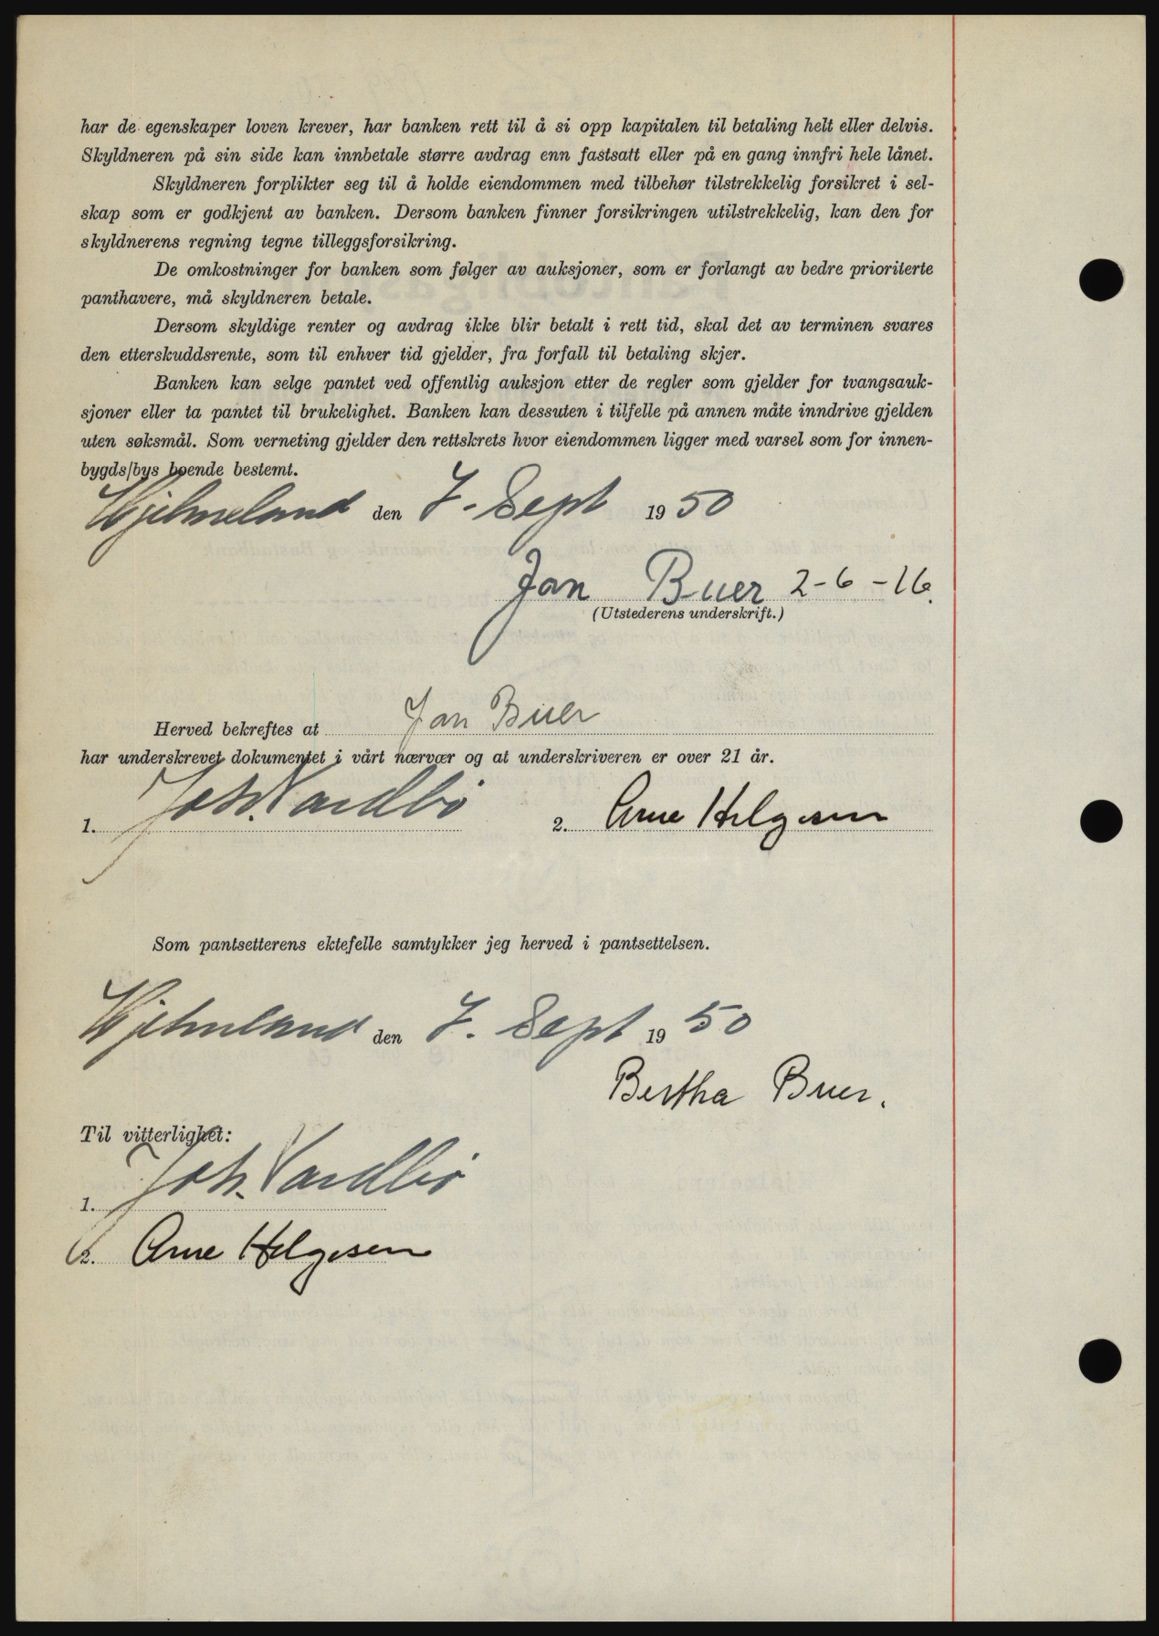 har de egenskaper loven krever, har banken rett til å si opp kapitalen til betaling helt eller delvis.
Skyldneren på sin side kan innbetale større avdrag enn fastsatt eller på en gang innfri hele lånet.
Skyldneren forplikter seg til å holde eiendommen med tilbehør tilstrekkelig forsikret i sel-
skap som er godkjent av banken. Dersom banken finner forsikringen utilstrekkelig, kan den for
skyldnerens regning tegne tilleggsforsikring.
De omkostninger for banken som følger av auksjoner, som er forlangt av bedre prioriterte
panthavere, må skyldneren betale.
Dersom skyldige renter og avdrag ikke blir betalt i rett tid, skal det av terminen svares
den etterskuddsrente, som til enhver tid gjelder, fra forfall til betaling skjer.
Banken kan selge pantet ved offentlig auksjon etter de regler som gjelder for tvangsauk-
sjoner eller ta pantet til brukelighet. Banken kan dessuten i tilfelle på annen måte inndrive gjelden
uten søksmål. Som verneting gjelder den rettskrets hvor eiendommen ligger med varsel som for innen-
bygds/bys boende bestemt.
Hjelmeland den 7. Sept 1950
Jan Buer 2-6-16.
(Utstederens underskrift.)
Herved bekreftes at Jan Buer
har underskrevet dokumentet i vårt nærvær og at underskriveren er over 21 år.
1. Joh. Vardbø 2. Arne Helgesen
Som pantsetterens ektefelle samtykker jeg herved i pantsettelsen.
Hjelmeland den 7. Sept 1950
Bertha Buer.
Til vitterlighet:
1. Joh. Vardbø
2. Arne Helgesen